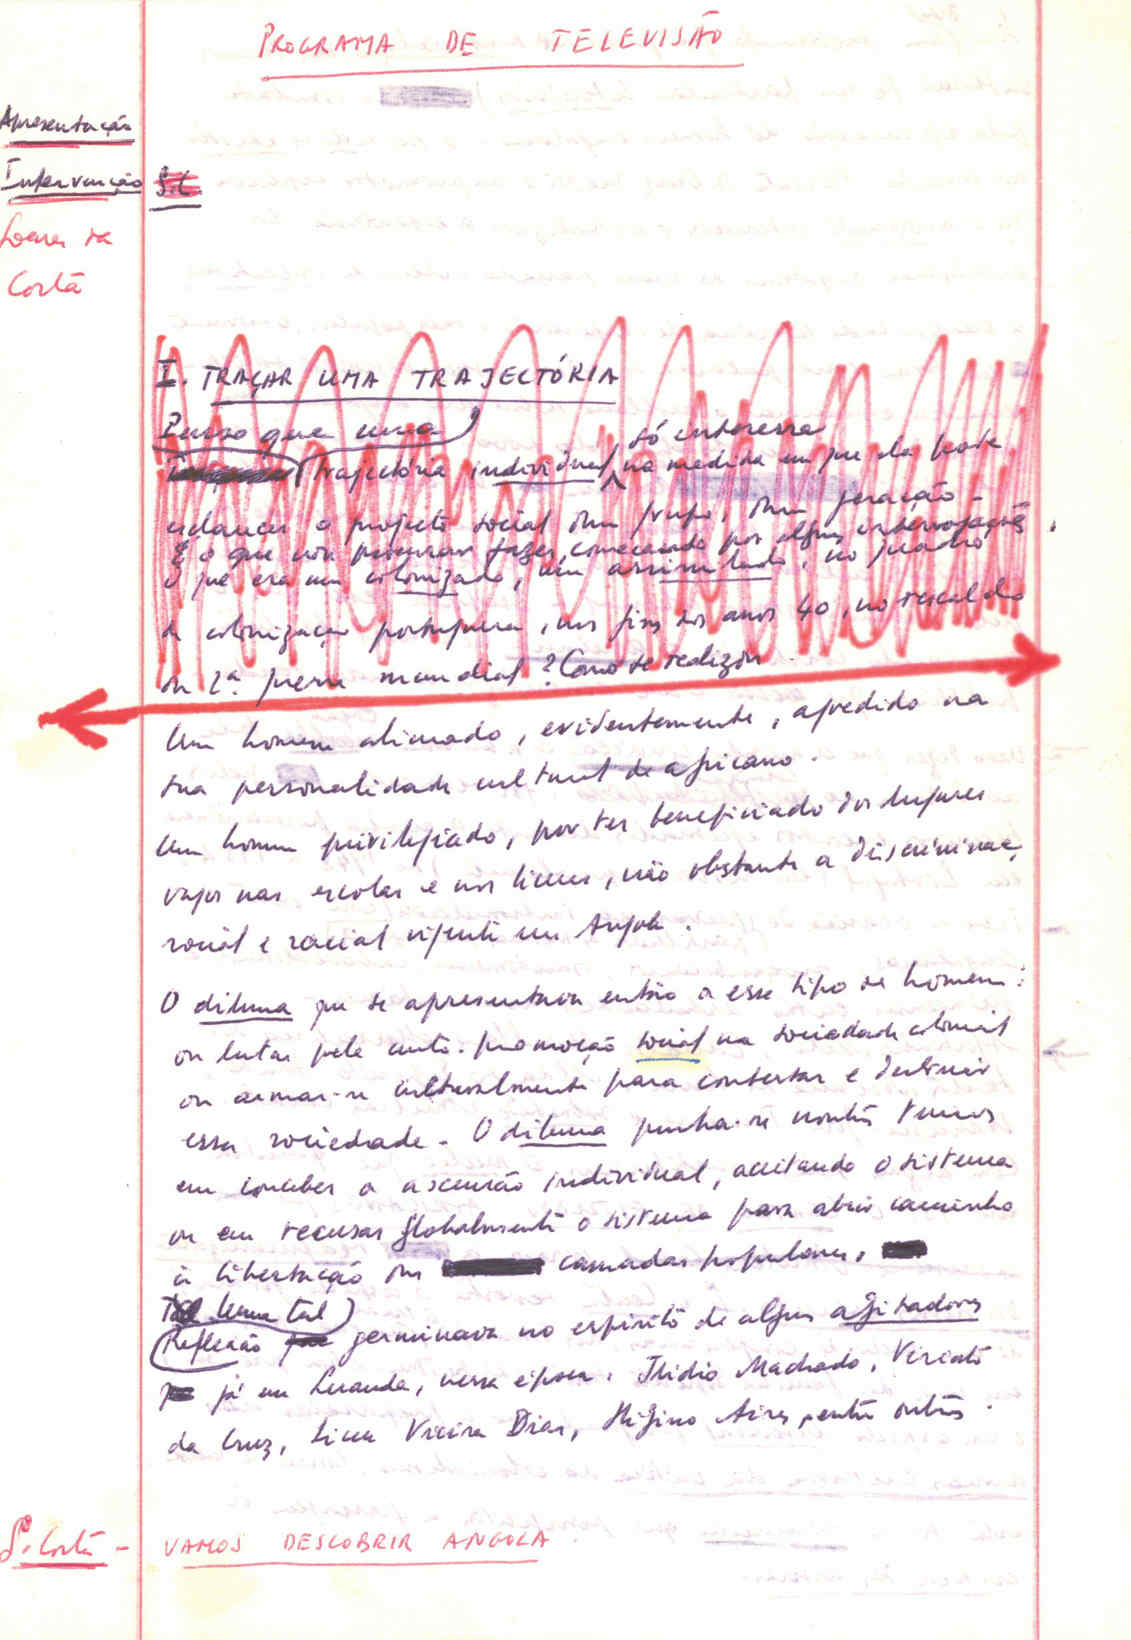 PROGRAMA DE TELEVISÃO
Apresentação
Intervenção S.C.
Soares da
Costa
I. TRAÇAR UMA TRAJECTÓRIA
Penso que uma
trajectória individual, só interessa na medida em que ela pode
esclarecer o projecto social dum grupo, duma geração -
É o que vou procurar fazer, começando por algumas interrogações.
O que era um colonizado, um assimilado, no quadro
da colonização portuguesa, nos fins dos anos 40, no rescaldo
da 2ª. guerra mundial? Como se realizou
Um homem alienado, evidentemente, agredido na
sua personalidade cultural de africano.
Um homem privilegiado, por ter beneficiado dos lugares
vagos nas escolas e nos liceus, não obstante a discriminação
social e racial vigente em Angola.
O dilema que se apresentava então a esse tipo de homem:
ou lutar pela auto-promoção social na sociedade colonial
ou armar-se culturalmente para contestar e destruir
essa sociedade. O dilema punha-se noutros termos
em conceber a ascensão individual, aceitando o sistema
ou em recusar globalmente o sistema para abrir caminho
à libertação das camadas populares.
Uma tal
Reflexão germinava no espírito de alguns agitadores
já em Luanda, nessa época. Ilídio Machado, Viriato
da Cruz, Liceu Vieira Dias, Higino Aires, entre outros.
S. Costa - VAMOS DESCOBRIR ANGOLA